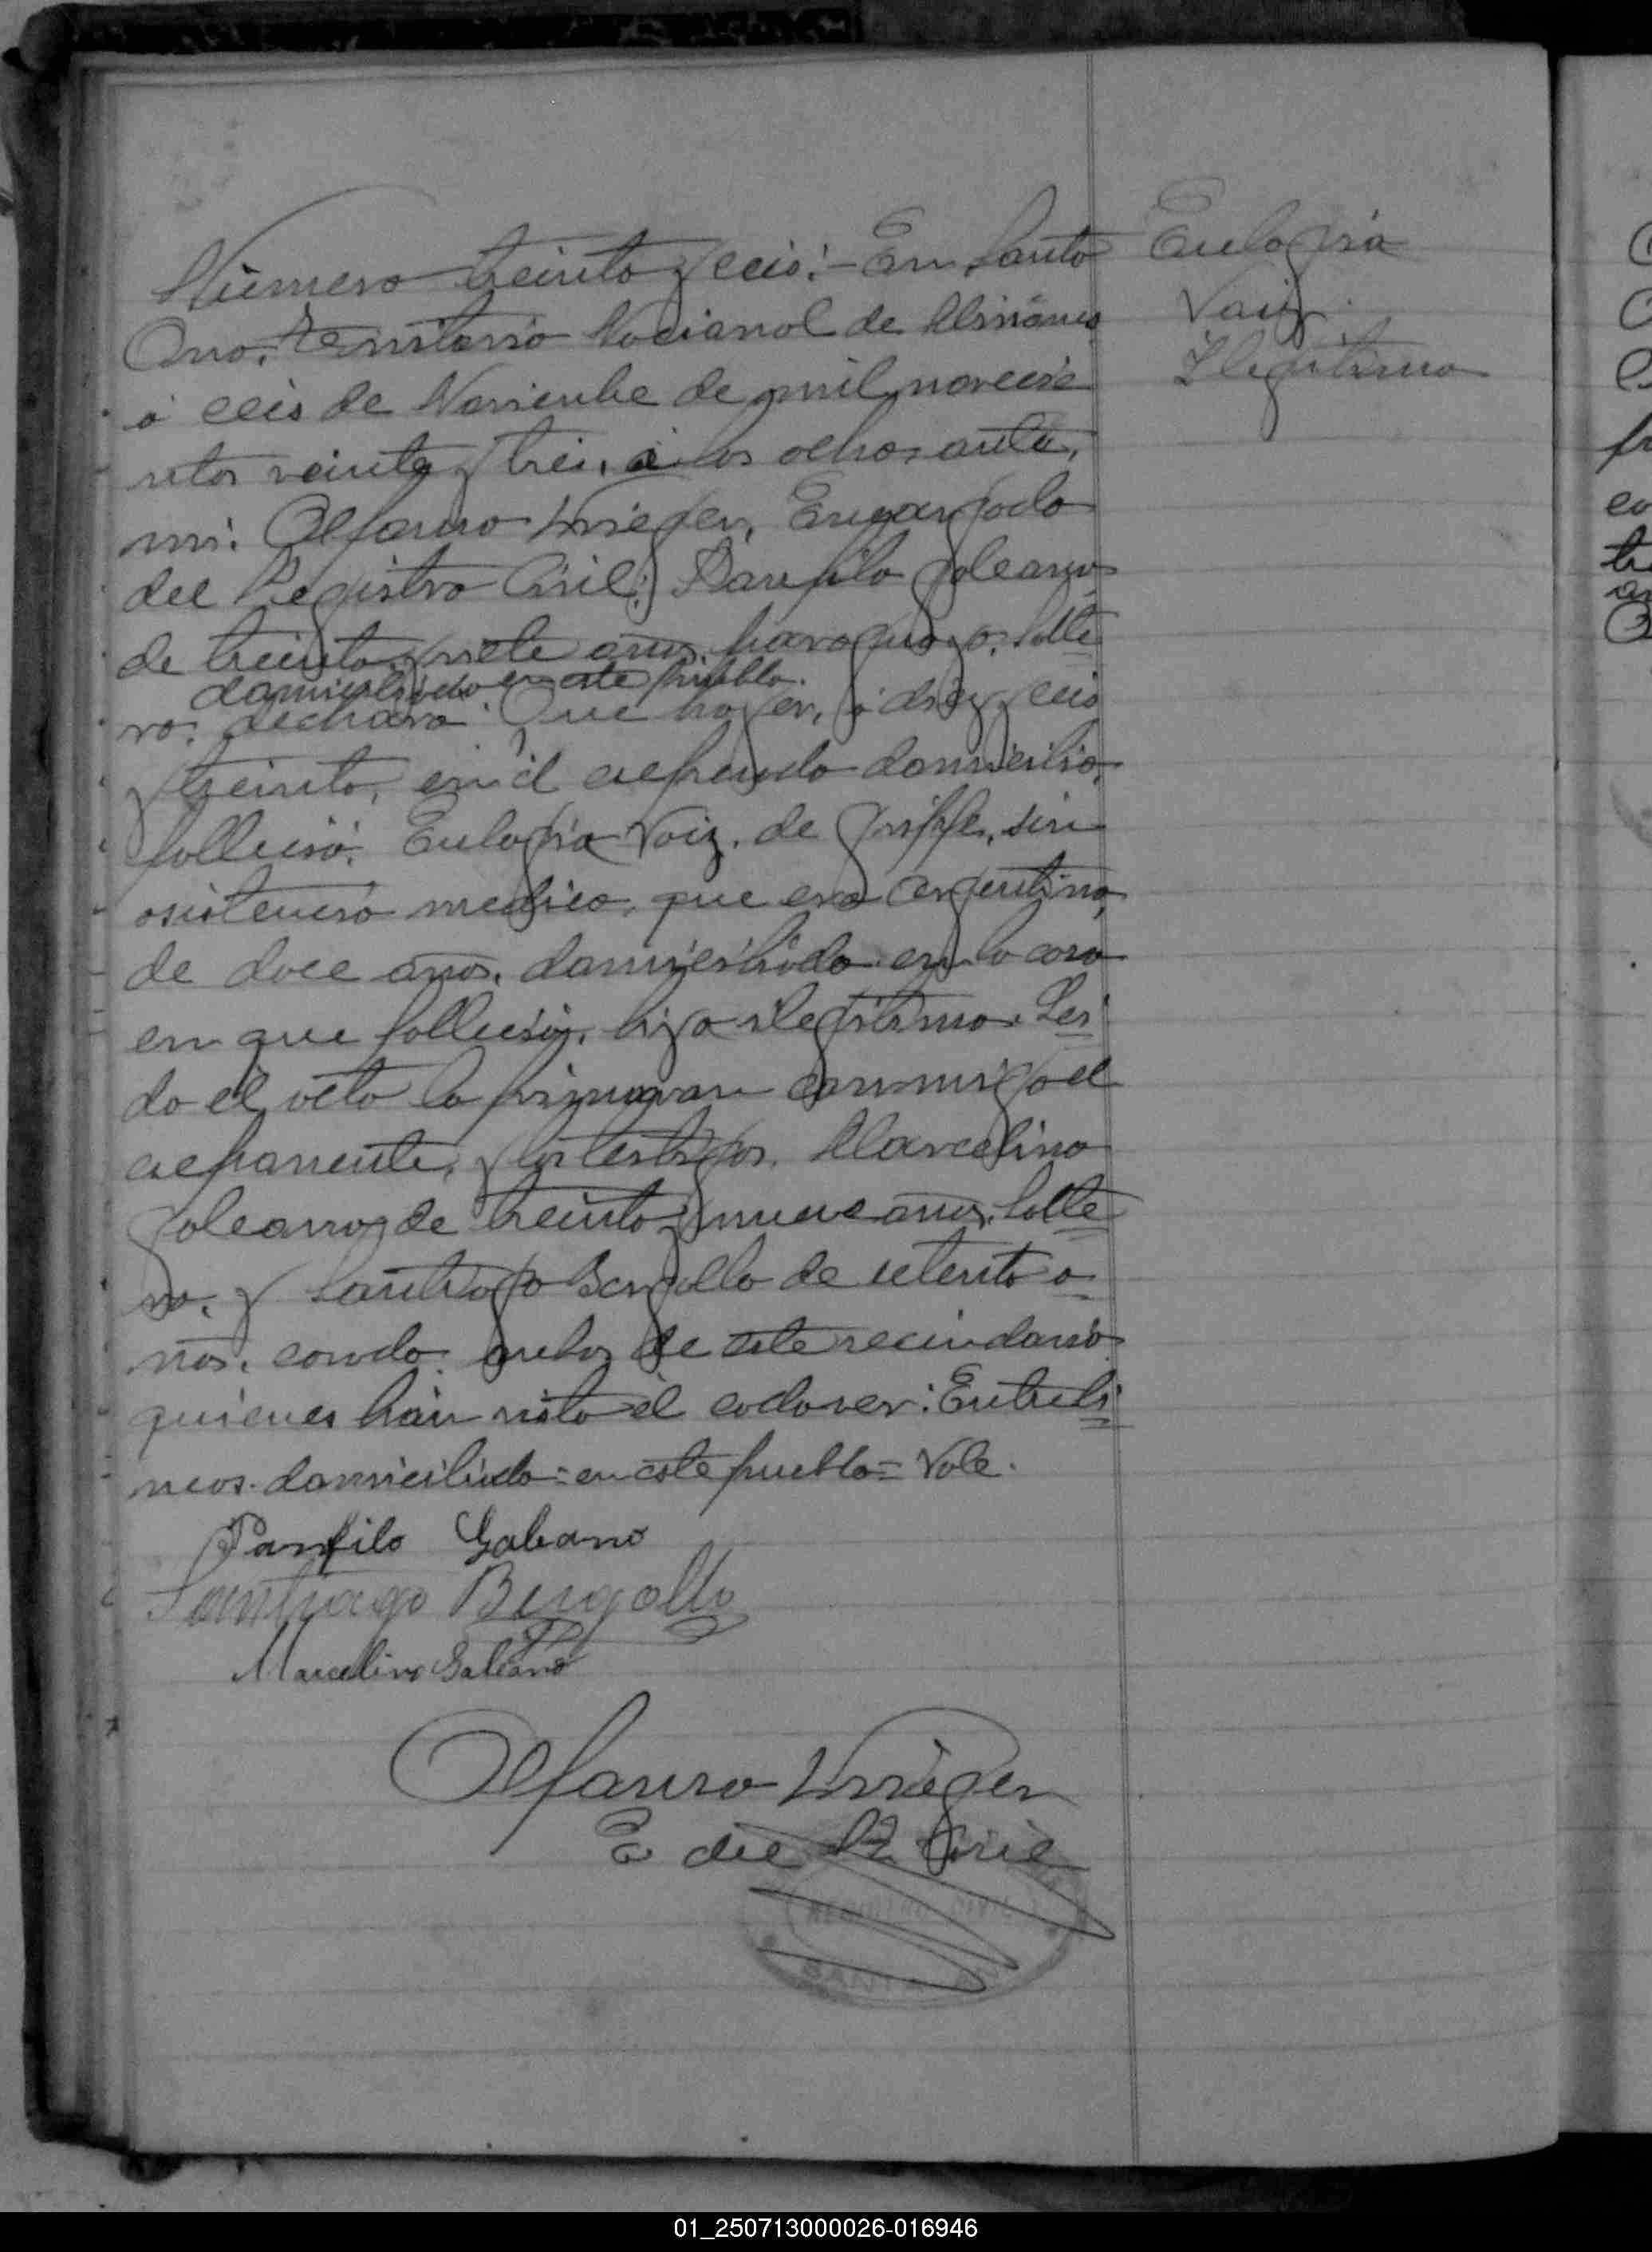 Número treinta y seis:- En Santa
Ana, Territorio Nacional de Misiones
á seis de Noviembre de mil novecie
ntos veinte y tres, á las ocho, ante,
mi. Alfauro Krieger, Encargado
del Registro Civil; Panfilo Galeano
de treinta y siete años, paraguayo, solte
domiciliado en este pueblo.
ro, declaró: Que hayer, á diez y seis
y treinta, en el expresado domicilio,
falleció, Eulogia Vaiz, de grippe, sin
asistencia medica, que era argentina,
de doce años, domiciliada en la casa
en que falleció, hija ilegitima. Leí
da el acta la firmaron conmigo el
exponente, y los testigos, Marcelino
Galeano, de treinta y nueve años, solte
ro, y Santiago Bergallo de setenta a
ños, casado, ambos de este vecindario
quienes han visto el cadaver: Entreli
neos. domiciliado = en este pueblo = Vale.
Panfilo Galeano
Santiago Bergallo
Marcelino Galeano
Alfauro Krieger
E del R. Civil
REGISTRO CIVIL
SANTA ANA
Eulogia
Vaiz
Ilegitima
01_250713000026-016946